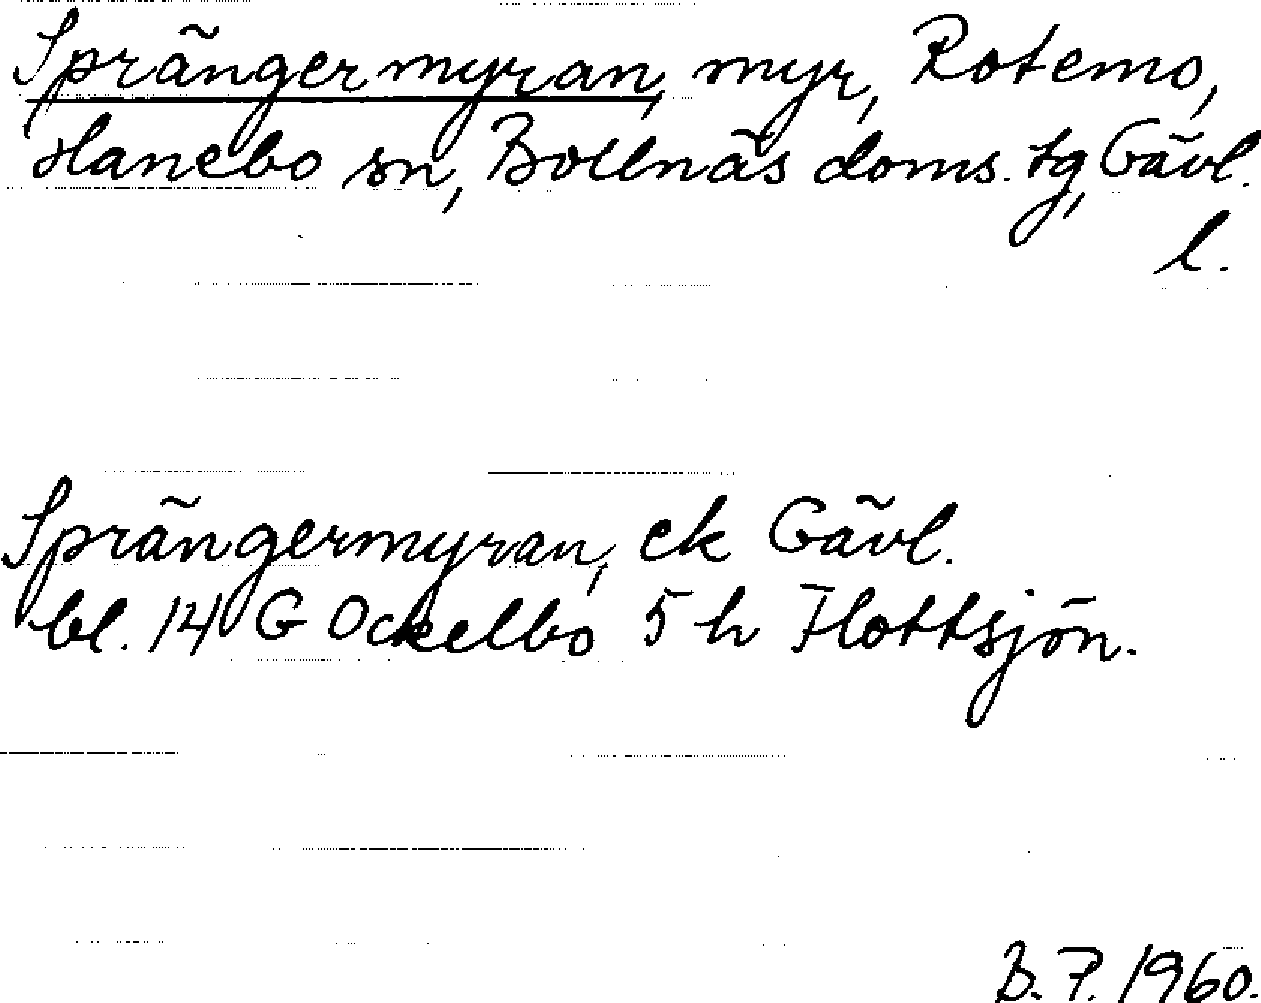 Sprängermyran, myr, Rotemo,
Hanebo sn, Bollnäs doms. tg, Gävl.
l.
Sprängermyran, ek Gävl.
bl. 14 G Ockelbo 5 h Flottsjön.
B. P. 1960.